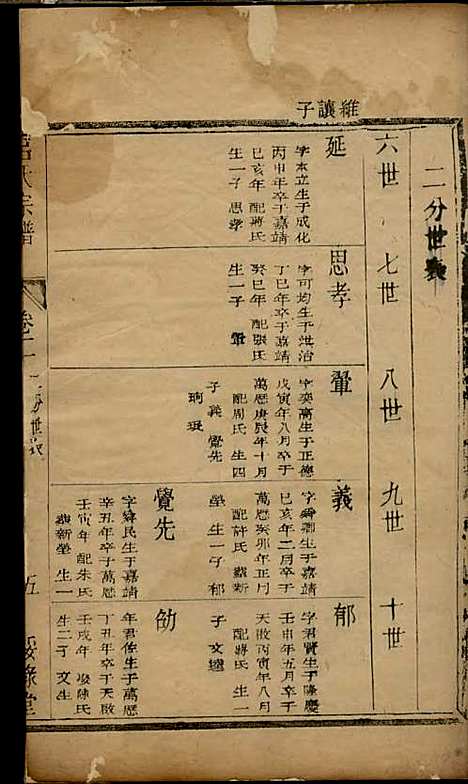 二分世表
六世
七世
八世
九世
十世
維讓子
延
字本立生于成化
丙申年卒于嘉靖
己亥年 配蔣氏
生一子 思孝
思孝
字可均生于弘治
丁巳年卒于嘉靖
癸巳年 配張氏
生一子 鞏
鞏
字奕高生于正德
戊寅年八月卒于
萬曆庚辰年十月
配周氏 生四
子 義 覺先
義
己亥年二月卒于
萬曆癸卯年正月
配許氏
生一子 郁
郁
字君賢生于隆慶
壬申年五月卒于
天啟丙寅年八月
配蔣氏 生一
子
覺先
字舜民生于嘉靖
辛丑年卒于萬曆
壬寅年 配朱氏
生一
年君佐生于萬曆
丁丑年卒于天啟
壬戌年 陳氏
生二子 文生
氏宗譜
卷二
二分世表
五